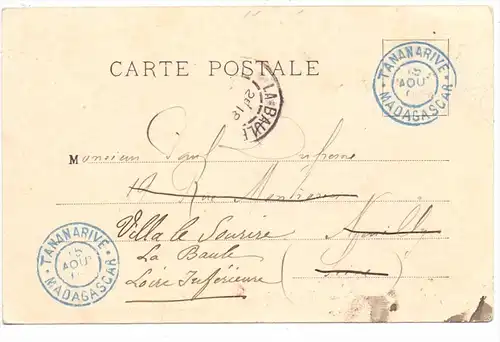 CARTE POSTALE
TANANARIVE
15
AOUT
MADAGASCAR
LA BAULE
Monsieur Paul Dufresne
19 Rue Montrosier
Villa le Sourire Neuilly
La Baule
Loire Inférieure (Seine)
TANANARIVE
15
AOUT
MADAGASCAR